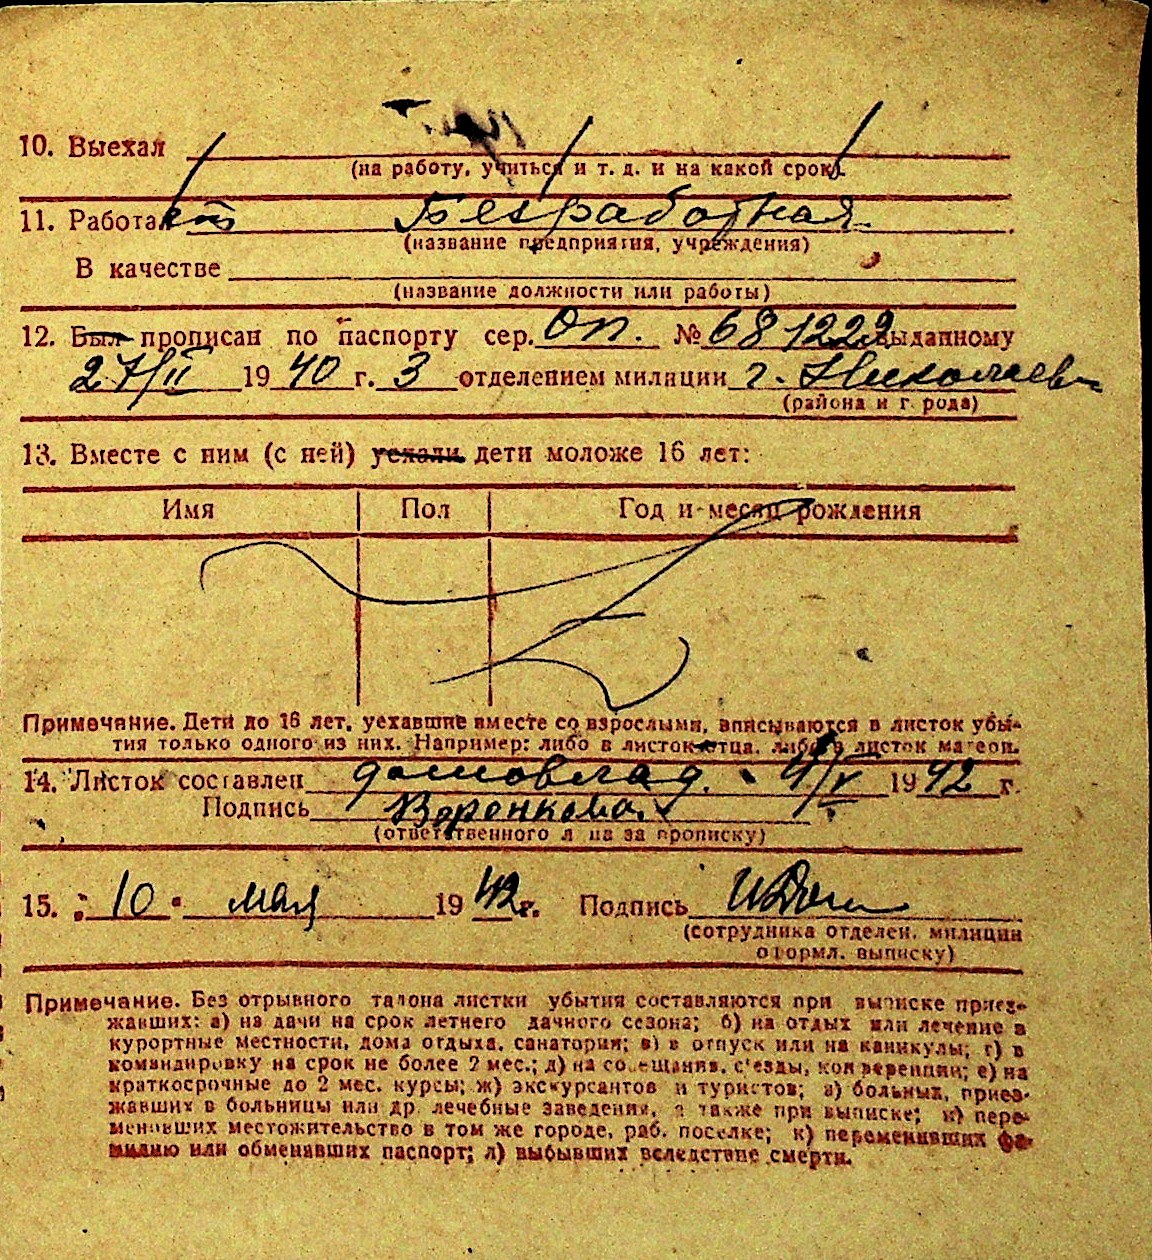 10. Выехал
(на работу, учиться и т. д. и на какой срок)
11. Работает Безработная
(название предприятия, учреждения)
В качестве
(название должности или работы)
12. Был прописан по паспорту сер. ОП. № 681222 выданному
27/II 1940 г. 3 отделением милиции г. Николаев
(района и города)
13. Вместе с ним (с ней) уехали дети моложе 16 лет:
Имя Пол Год и месяц рождения
Примечание. Дети до 16 лет, уехавшие вместе со взрослыми, вписываются в листок убы-
тия только одного из них. Например: либо в листок отца, либо в листок матери.
14. Листок составлен домовлад. 4/V 1942 г.
Подпись Воренкова
(ответственного лица за прописку)
15. "10" мая 1942 г. Подпись
(сотрудника отделен. милиции
оформл. выписку)
Примечание. Без отрывного талона листки убытия составляются при выписке приез-
жавших: а) на дачи на срок летнего дачного сезона; б) на отдых или лечение в
курортные местности, дома отдыха, санатории; в) в отпуск или на каникулы; г) в
командировку на срок не более 2 мес.; д) на совещания, с'езды, конференции; е) на
краткосрочные до 2 мес. курсы; ж) экскурсантов и туристов; з) больных, приез-
жавших в больницы или др. лечебные заведения, а также при выписке; и) пере-
менивших местожительство в том же городе, раб. поселке; к) переменивших фа-
милию или обменявших паспорт; л) выбывших вследствие смерти.